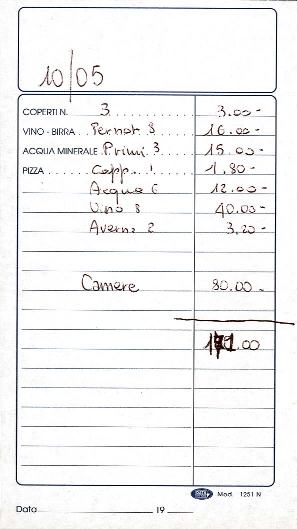 10/05
COPERTI N. 3 3.00-
VINO - BIRRA Pernot 8 16.00-
ACQUA MINERALE Primi 3 15.00-
PIZZA Capp. 1 1.80-
Acqua 6 12.00-
Vino 8 40.00-
Averna 2 3.20-
Camere 80.00-
171.00
Mod. 1251 N
Data 19